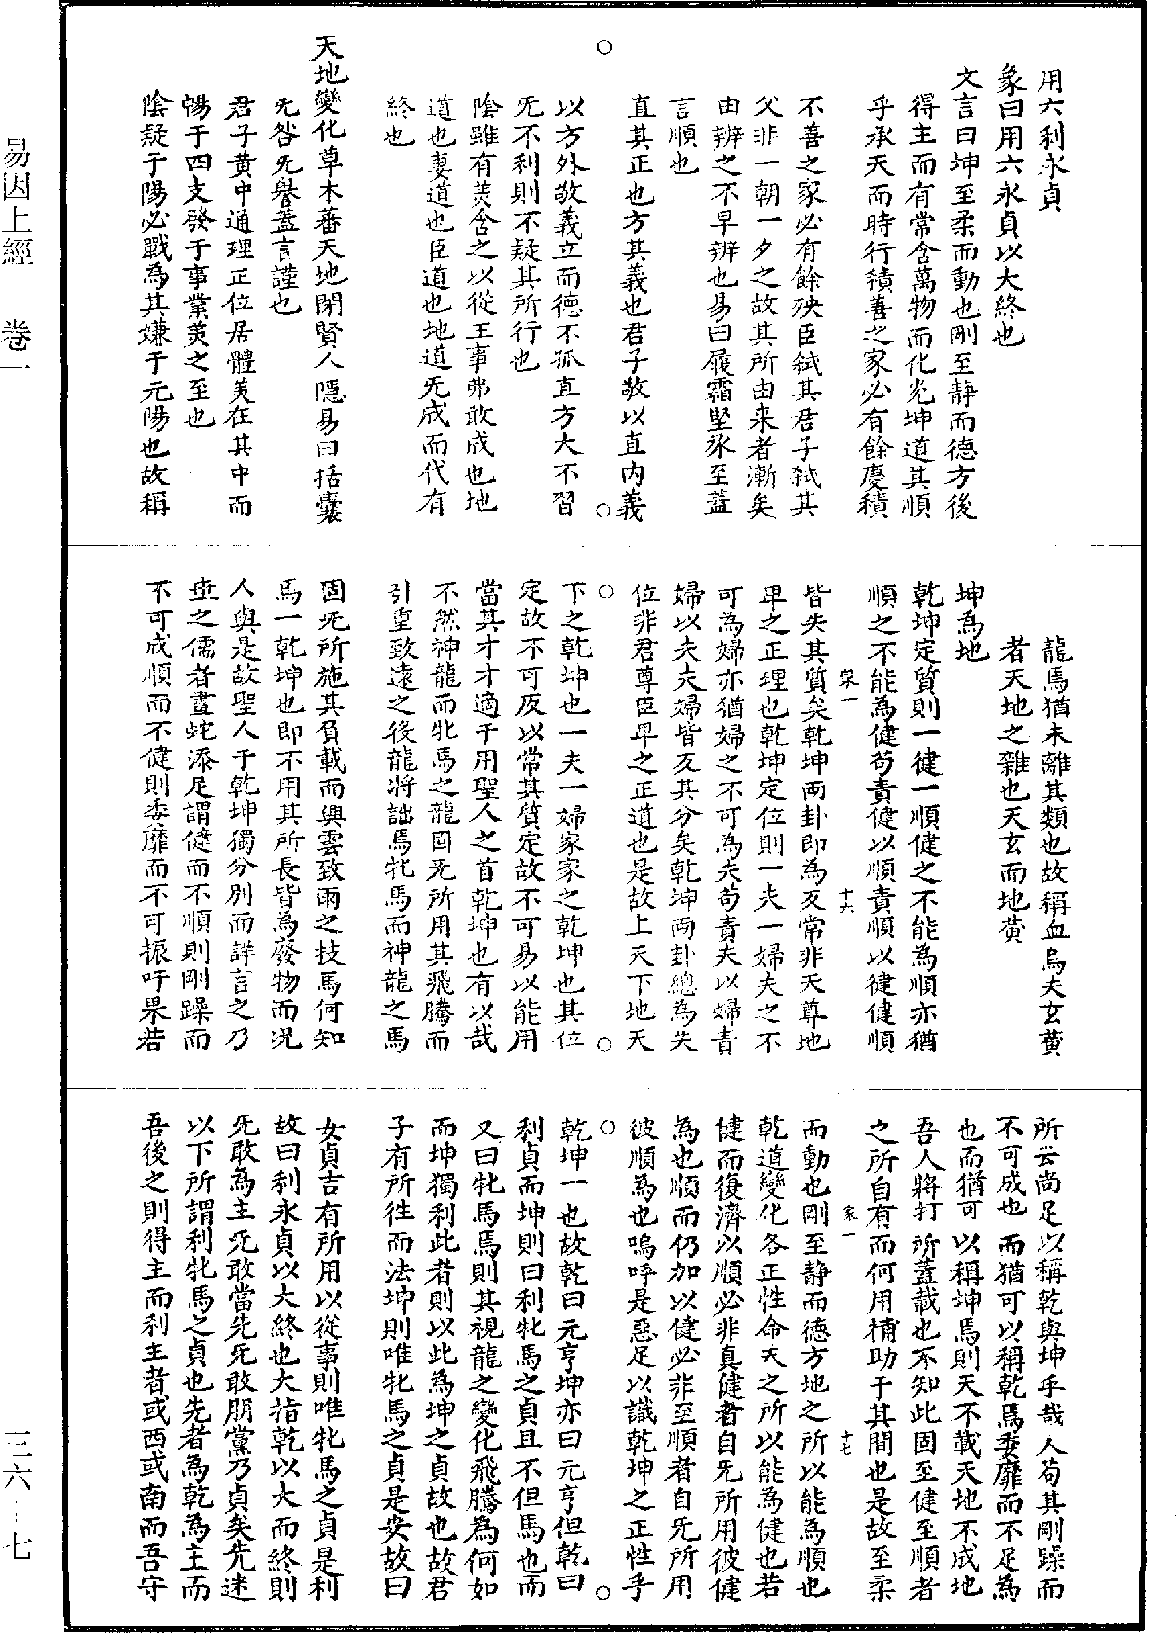 用六利永貞
象曰用六永貞以大終也
文言曰坤至柔而動也剛至静而德方後
得主而有常含萬物而化光坤道其順
乎承天而時行積善之家必有餘慶積
不善之家必有餘殃臣弑其君子弑其
父非一朝一夕之故其所由来者漸矣
由辨之不早辨也易曰履霜堅氷至蓋
言順也
直其正也方其義也君子敬以直内義
以方外敬義立而德不孤直方大不習
旡不利則不疑其所行也
陰雖有美含之以從王事弗敢成也地
道也妻道也臣道也地道旡成而代有
終也
天地變化草木蕃天地閉賢人隱易曰括囊
旡咎旡譽蓋言謹也
君子黄中通理正位居體美在其中而
暢于四支發于事業美之至也
陰疑于陽必戰為其嫌于元陽也故稱
龍馬猶未離其類也故稱血焉夫玄黄
者天地之雜也天玄而地黄
坤為地
乾坤定質則一健一順健之不能為順亦猶
順之不能為健苟責健以順責順以健健順
皆失其質矣乾坤兩卦即為反常非天尊地
卑之正理也乾坤定位則一夫一婦夫之不
可為婦亦猶婦之不可為夫苟責夫以婦責
婦以夫夫婦皆反其分矣乾坤兩卦總為失
位非君尊臣卑之正道也是故上天下地天
下之乾坤也一夫一婦家家之乾坤也其位
定故不可反以常其質定故不可易以能用
當其才才適于用聖人之首乾坤也有以哉
不然神龍而牝馬之龍固旡所用其飛騰而
引重致遠之後龍將詘馬牝馬而神龍之馬
固旡所施其負載而興雲致雨之技馬何知
馬一乾坤也即不用其所長皆為廢物而况
人與是故聖人于乾坤獨分別而詳言之乃
世之儒者畫蛇添足謂健而不順則剛躁而
不可成順而不健則委靡而不可振吁果若
所云尚足以稱乾與坤乎哉人苟其剛躁而
不可成也而猶可以稱乾焉委靡而不足為
也而猶可以稱坤焉則天不載天地不成地
吾人將打所蓋載也不知此固至健至順者
之所自有而何用補助于其間也是故至柔
而動也剛至静而德方地之所以能為順也
乾道變化各正性命天之所以能為健也若
健而復濟以順必非真健者自旡所用彼健
為也順而仍加以健必非至順者自旡所用
彼順為也嗚呼是惡足以識乾坤之正性乎
乾坤一也故乾曰元亨坤亦曰元亨但乾曰
利貞而坤則曰利牝馬之貞且不但馬也而
又曰牝馬馬則其視龍之變化飛騰為何如
而坤獨利此者則以此為坤之貞故也故君
子有所往而法坤則唯牝馬之貞是安故曰
女貞吉有所用以從事則唯牝馬之貞是利
故曰利永貞以大終也大指乾以大而終則
旡敢為主旡敢當先旡敢朋黨乃貞矣先迷
以下所謂利牝馬之貞也先者為乾為主而
吾後之則得主而利主者或西或南而吾守
易因上經 卷一
三六·七
十六
十七